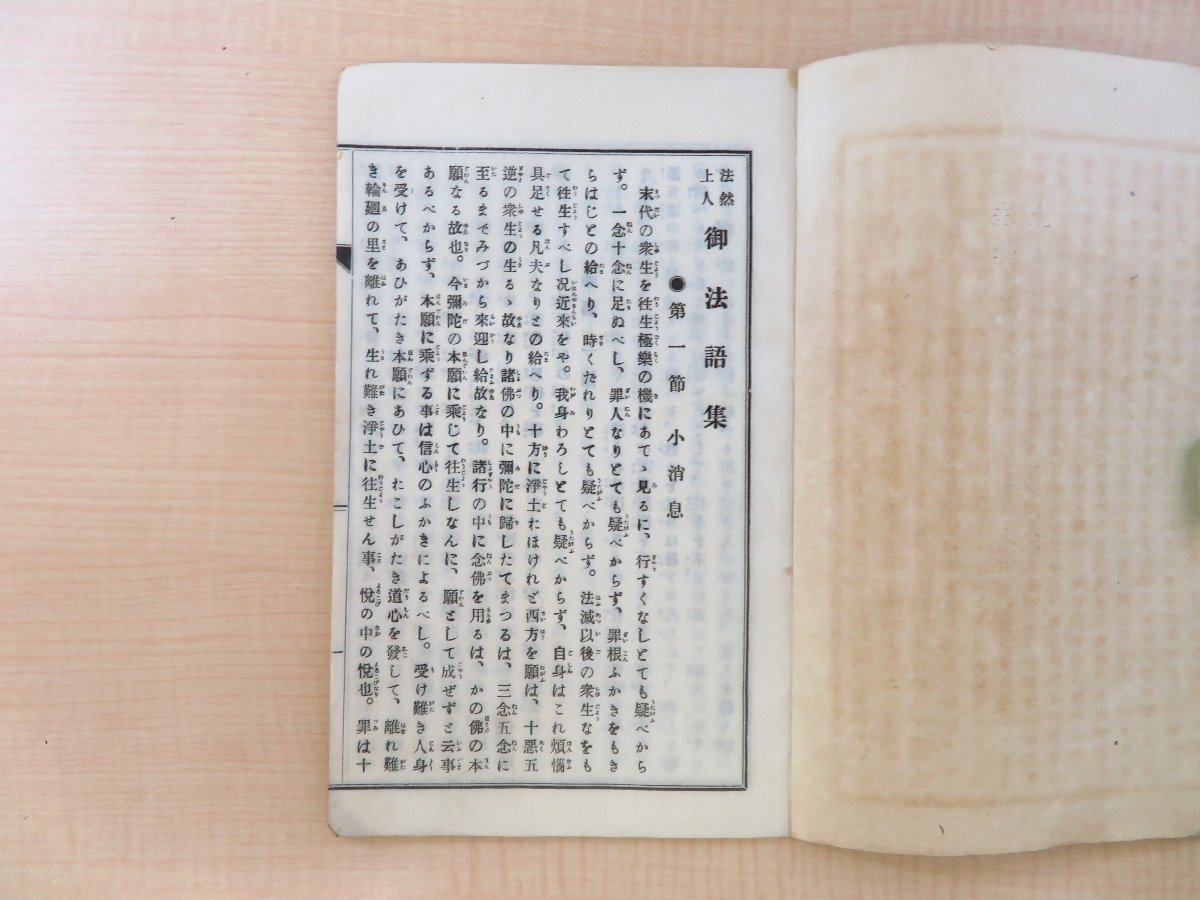 法然上人 御法語集
●第一節 小消息
末代の衆生を往生極樂の機にあてゝ見るに、行すくなしとても疑べから
ず。一念十念に足ぬべし、罪人なりとても疑べからず、罪根ふかきをもき
らはじとの給へり、時くたれりとても疑べからず。法滅以後の衆生なをも
て往生すべし况近來をや。我身わろしとても疑べからず、自身はこれ煩惱
具足せる凡夫なりとの給へり。十方に淨土おほけれど西方を願は、十惡五
逆の衆生の生るゝ故なり諸佛の中に彌陀に歸したてまつるは、三念五念に
至るまでみづから來迎し給故なり。諸行の中に念佛を用るは、かの佛の本
願なる故也。今彌陀の本願に乘じて往生しなんに、願として成ぜずと云事
あるべからず、本願に乘ずる事は信心のふかきによるべし。受け難き人身
を受けて、あひがたき本願にあひて、おこしがたき道心を發して、離れ難
き輪廻の里を離れて、生れ難き淨土に往生せん事、悅の中の悅也。罪は十